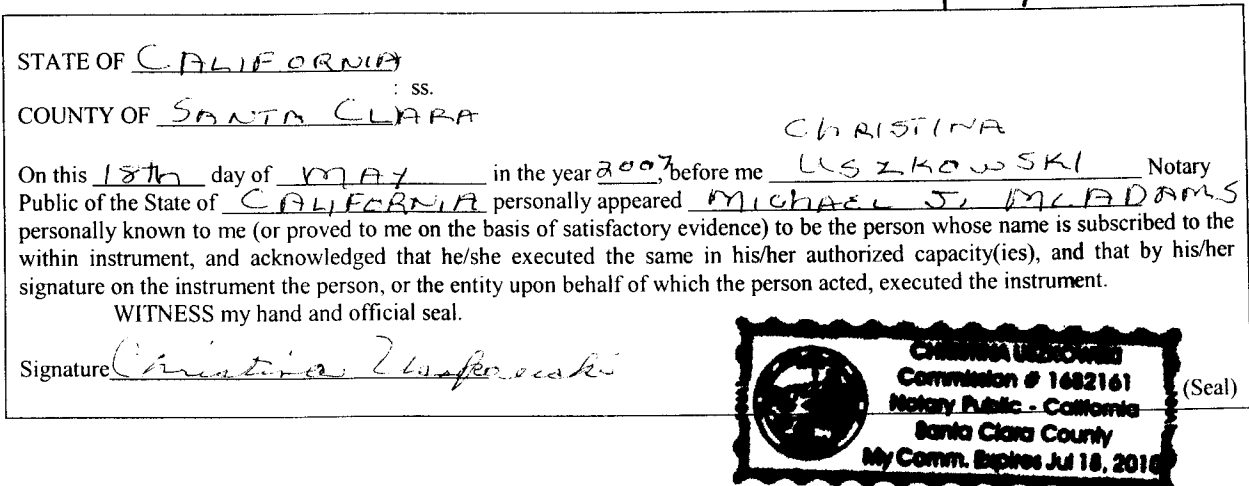 STATE OF CALIFORNIA
: ss.
COUNTY OF SANTA CLARA
CHRISTINA
On this 18th day of MAY in the year 2007, before me USZKOWSKI Notary
Public of the State of CALIFORNIA personally appeared MICHAEL J. MCADAMS
personally known to me (or proved to me on the basis of satisfactory evidence) to be the person whose name is subscribed to the
within instrument, and acknowledged that he/she executed the same in his/her authorized capacity(ies), and that by his/her
signature on the instrument the person, or the entity upon behalf of which the person acted, executed the instrument.
WITNESS my hand and official seal.
Signature Christina Uszkowski
(Seal)
CHRISTINA USZKOWSKI
Commission # 1682161
Notary Public - California
Santa Clara County
My Comm. Expires Jul 18, 2010